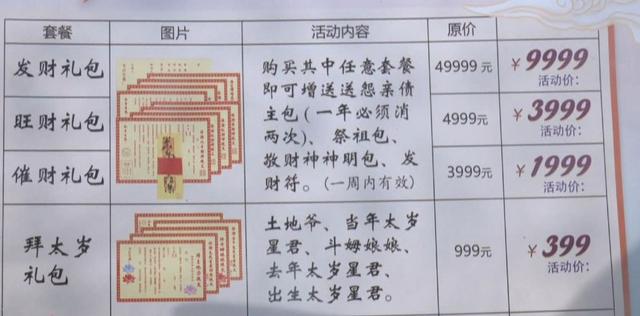 套餐 图片 活动内容 原价
发财礼包 49999元 ￥9999 活动价:
旺财礼包 4999元 ￥3999 活动价:
催财礼包 3999元 ￥1999 活动价:
购买其中任意套餐
即可增送送怨亲债
主包(一年必须消
两次)、祭祖包、
敬财神神明包、发
财符。(一周内有效)
拜太岁
礼包
土地爷、当年太岁
星君、斗姆娘娘、
去年太岁星君、
出生太岁星君。
999元 ￥399
活动价: